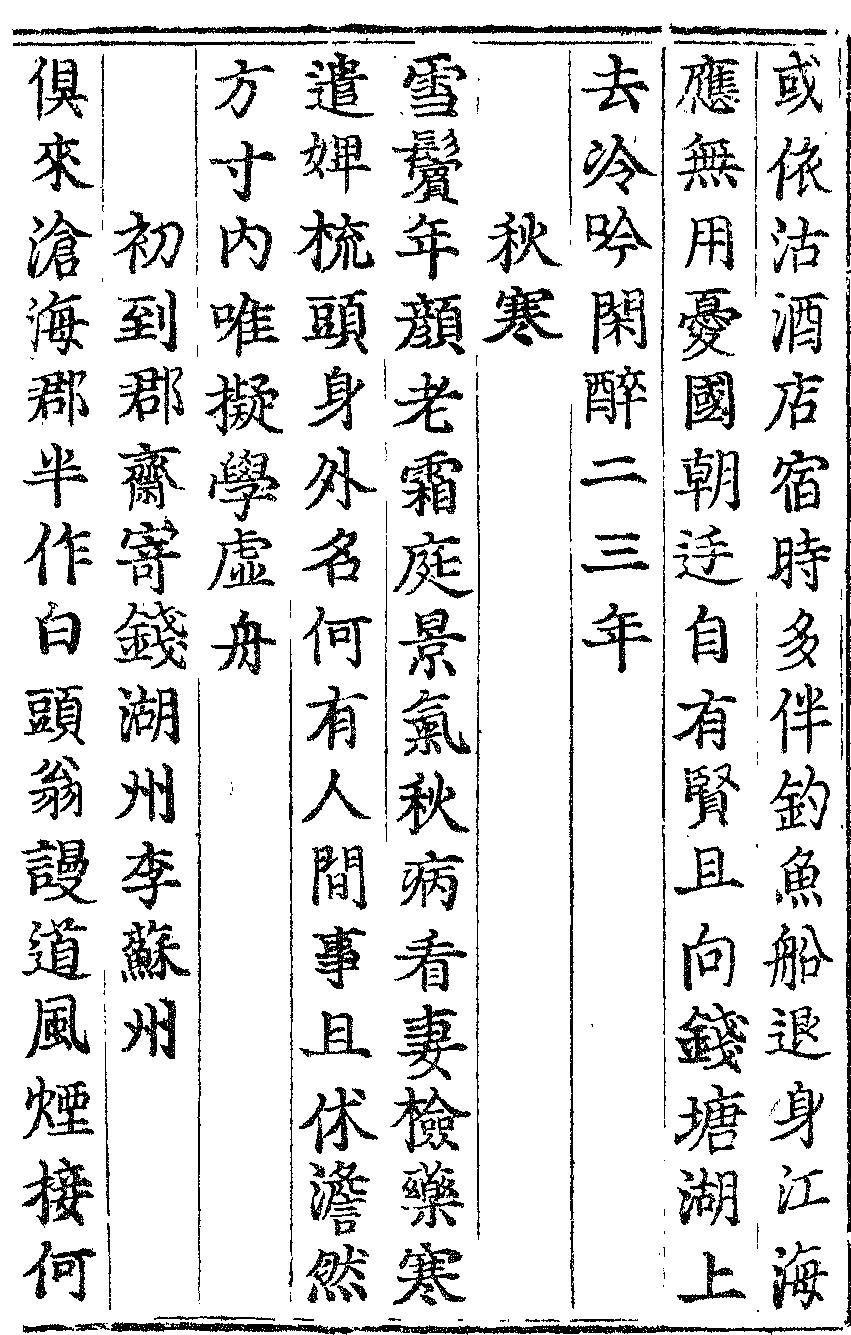 或依沽酒店宿時多伴釣魚船退身江海
應無用憂國朝廷自有賢且向錢塘湖上
去冷吟閑醉二三年
秋寒
雪鬢年顔老霜庭景氣秋病看妻檢藥寒
遣婢梳頭身外名何有人間事且休澹然
方寸內唯擬學虛舟
初到郡齋寄錢湖州李蘇州
俱來滄海郡半作白頭翁謾道風煙接何